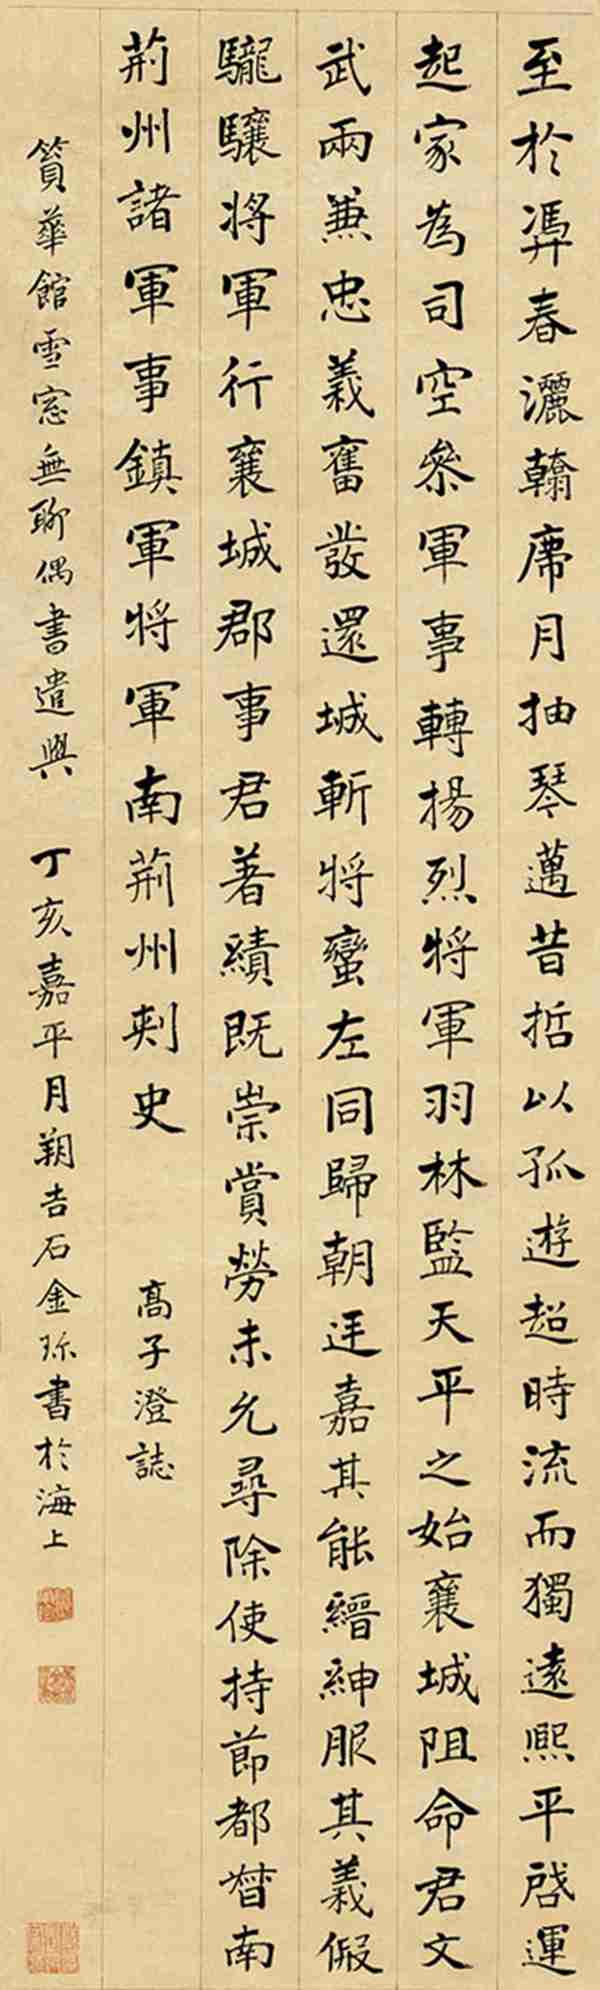 至於馮春灑翰席月抽琴邁昔哲以孤遊超時流而獨遠熙平啓運
起家為司空參軍事轉揚烈將軍羽林監天平之始襄城阻命君文
武兩兼忠義奮發還城斬將蠻左同歸朝廷嘉其能縉紳服其義假
驤驤將軍行襄城郡事君著績既崇賞勞未允尋除使持節都督南
荊州諸軍事鎮軍將軍南荊州刺史
高子澄誌
篔華館雪窓無聊偶書遣興 丁亥嘉平月朔吉石金珎書於海上